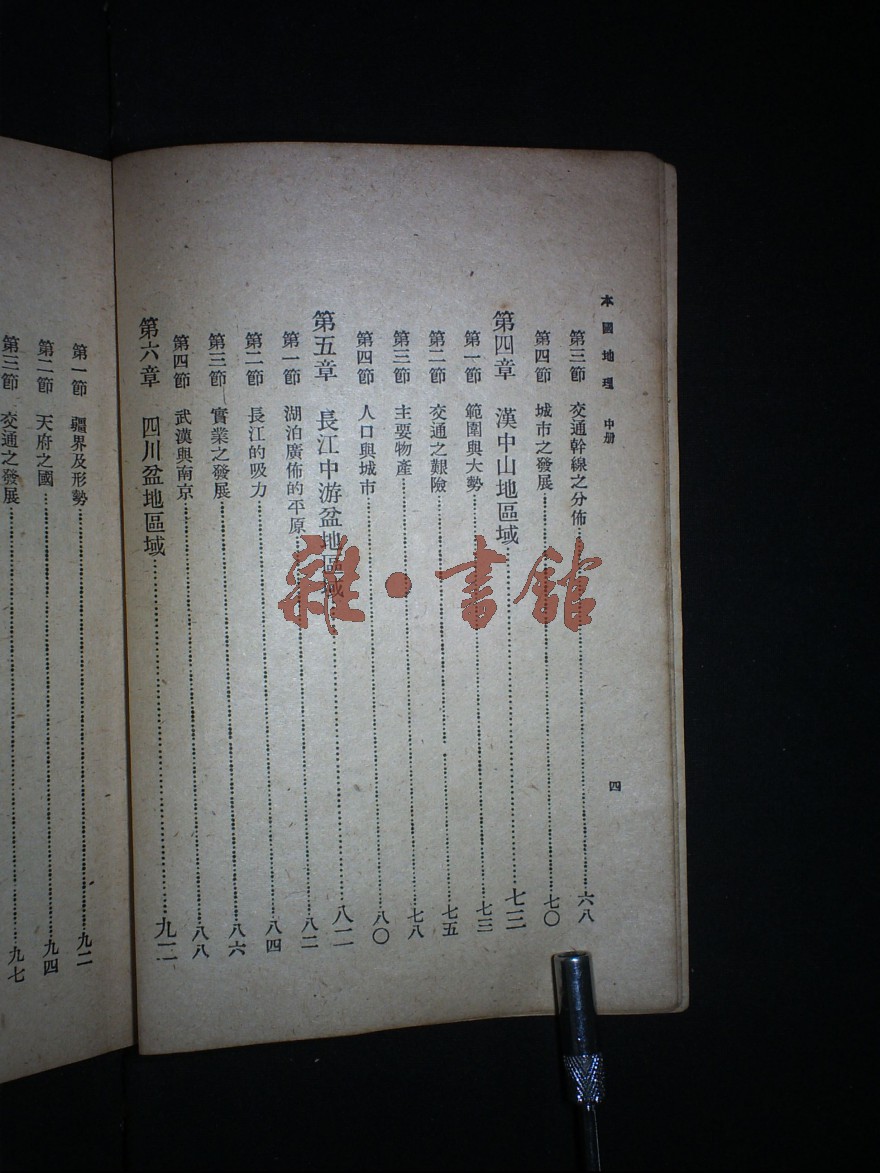 本國地理 中册
四
第三節 交通幹線之分佈……六八
第四節 城市之發展……七〇
第四章 漢中山地區域……七三
第一節 範圍與大勢……七三
第二節 交通之艱險……七五
第三節 主要物產……七八
第四節 人口與城市……八〇
第五章 長江中游盆地區域……八二
第一節 湖泊廣佈的平原……八二
第二節 長江的吸力……八四
第三節 實業之發展……八六
第四節 武漢與南京……八八
第六章 四川盆地區域……九二
第一節 疆界及形勢……九二
第二節 天府之國……九四
第三節 交通之發展……九七
雜·書館